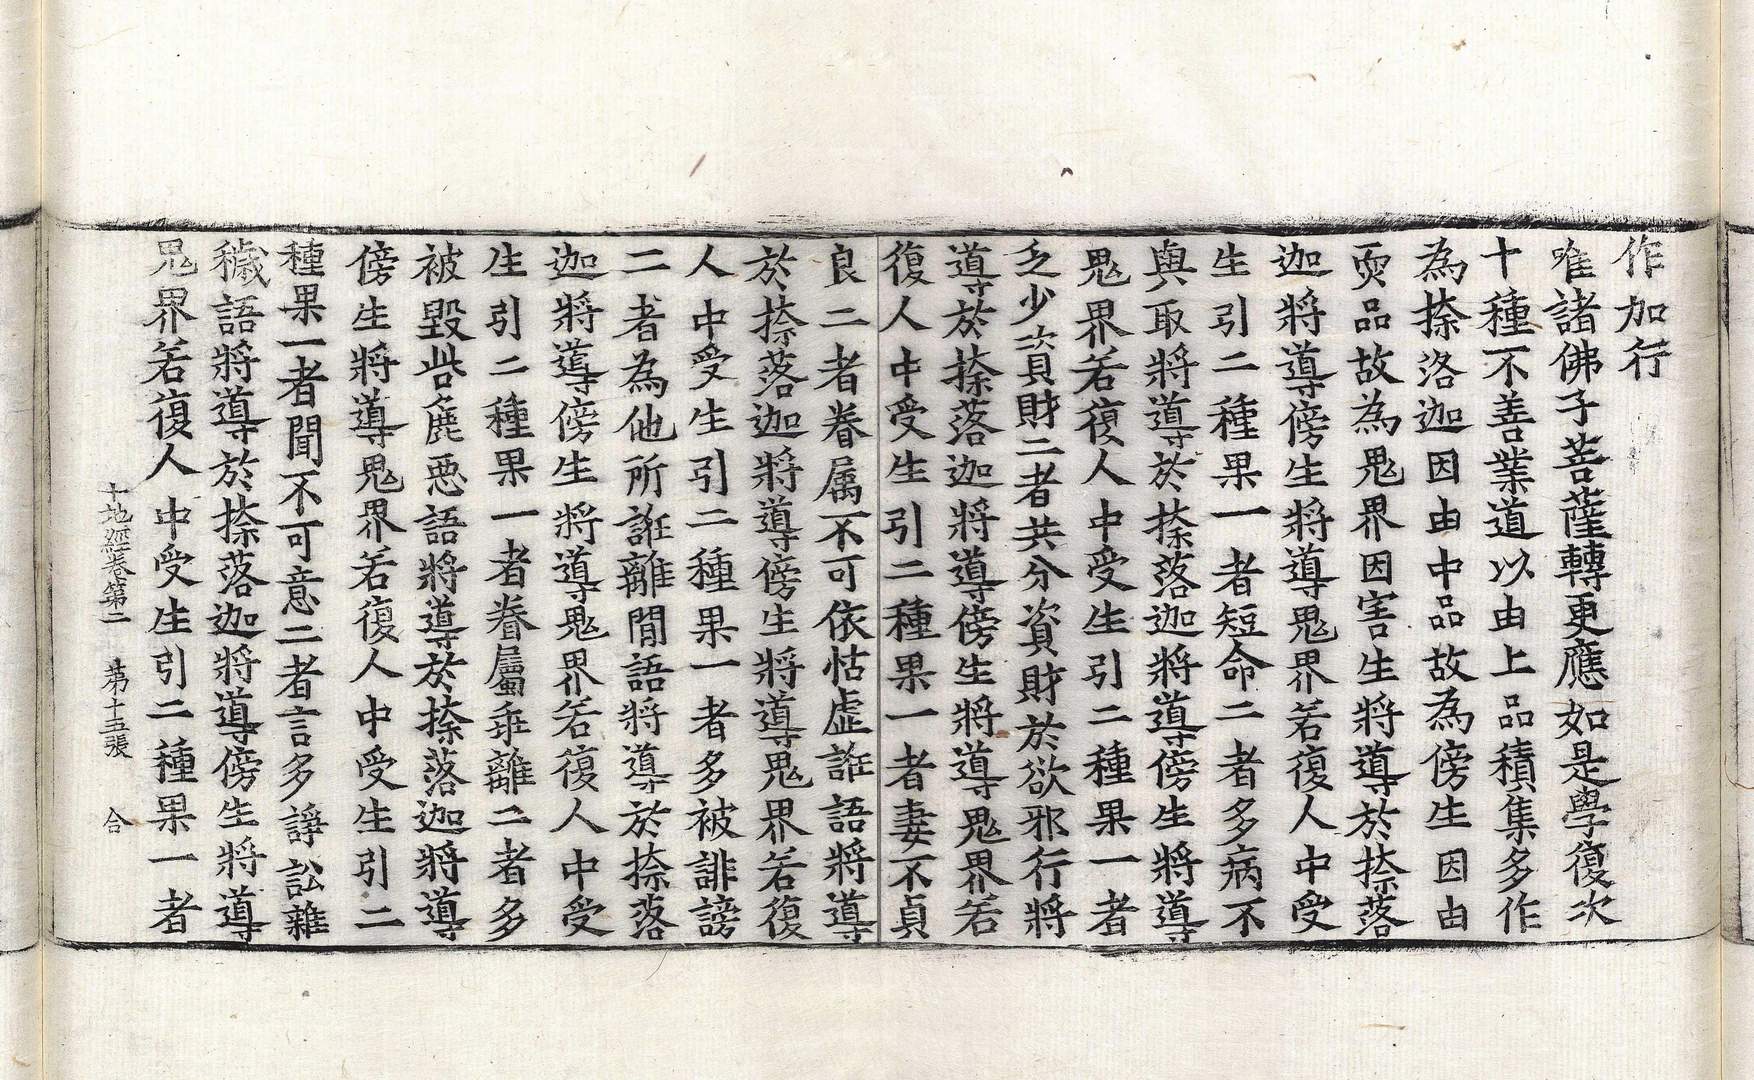 作加行
唯諸佛子菩薩轉更應如是學復次
十種不善業道以由上品積集多作
為捺洛迦因由中品故為傍生因由
耎品故為鬼界因害生將導於捺落
迦將導傍生將導鬼界若復人中受
生引二種果一者短命二者多病不
與取將導於捺落迦將導傍生將導
鬼界若復人中受生引二種果一者
乏少資財二者共分資財於欲邪行將
導於捺落迦將導傍生將導鬼界若
復人中受生引二種果一者妻不貞
良二者眷属不可依怙虛誑語將導
於捺落迦將導傍生將導鬼界若復
人中受生引二種果一者多被誹謗
二者為他所誑離間語將導於捺落
迦將導傍生將導鬼界若復人中受
生引二種果一者眷屬乖離二者多
被毀呰麁惡語將導於捺落迦將導
傍生將導鬼界若復人中受生引二
種果一者聞不可意二者言多諍訟雜
穢語將導於捺落迦將導傍生將導
鬼界若復人中受生引二種果一者
十地經卷第二 第十五張 合